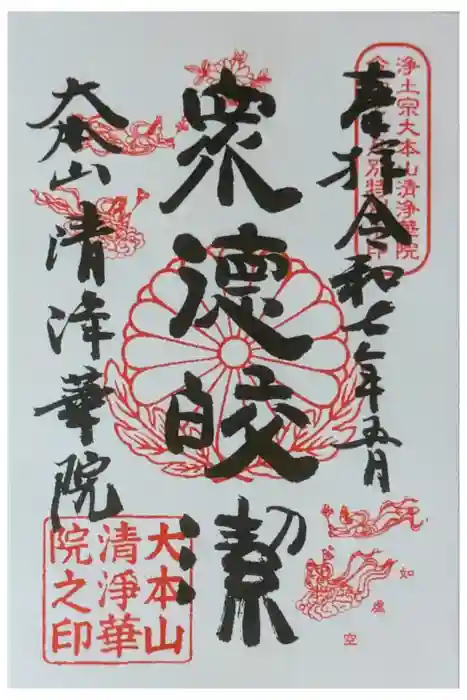 浄土宗大本山清浄華院
奉拝 令和七年五月
衆徳皎潔
如虚空
大本山 清浄華院
大本山
清淨華
院之印